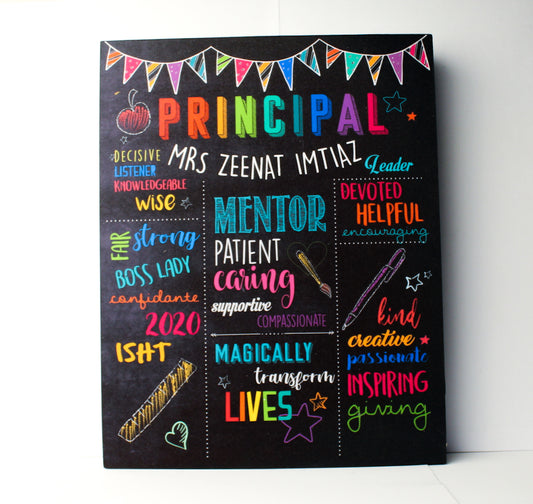 PRINCIPAL
MRS ZEENAT IMTIAZ
Leader
DECISIVE
LISTENER
KNOWLEDGEABLE
wise
FAIR
strong
BOSS LADY
confidante
2020
ISHT
MENTOR
PATIENT
caring
supportive
COMPASSIONATE
MAGICALLY
transform
LIVES
DEVOTED
HELPFUL
encouraging
kind
creative
passionate
INSPIRING
giving